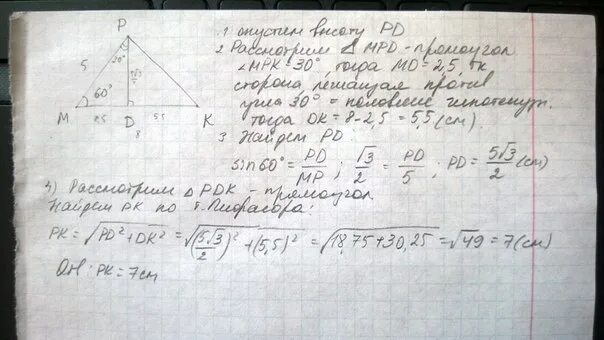 P
5
20°
5√3/2
60°
M 2,5 D 5,5 K
8
1 опустим высоту PD
2 Рассмотрим △ MPD - прямоугол
∠MPK = 30°, тогда MD = 2,5, тк
сторона, лежащая против
угла 30° = половине гипотенузы.
тогда DK = 8 - 2,5 = 5,5 (см)
3 Найдем PD:
sin 60° = PD/MP ; √3/2 = PD/5 ; PD = 5√3/2 (см)
4) Рассмотрим △ PDK - прямоугол.
Найдем PK по т. Пифагора:
PK = √(PD² + DK²) = √((5√3/2)² + (5,5)²) = √(18,75 + 30,25) = √49 = 7 (см)
Отв: PK = 7 см